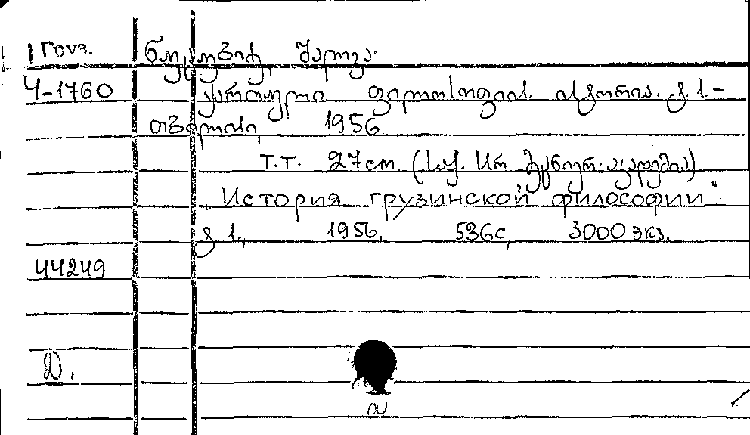 1 Груз. ნუცუბიძე, შალვა.
Ч-1760 ქართული ფილოსოფიის ისტორია. ტ 1.-
თბილისი, 1956
т.т. 27см. (საქ. სსრ მეცნიერ. აკადემია)
История грузинской философии
ტ 1., 1956, 536с, 3000 экз.
44249
Д.